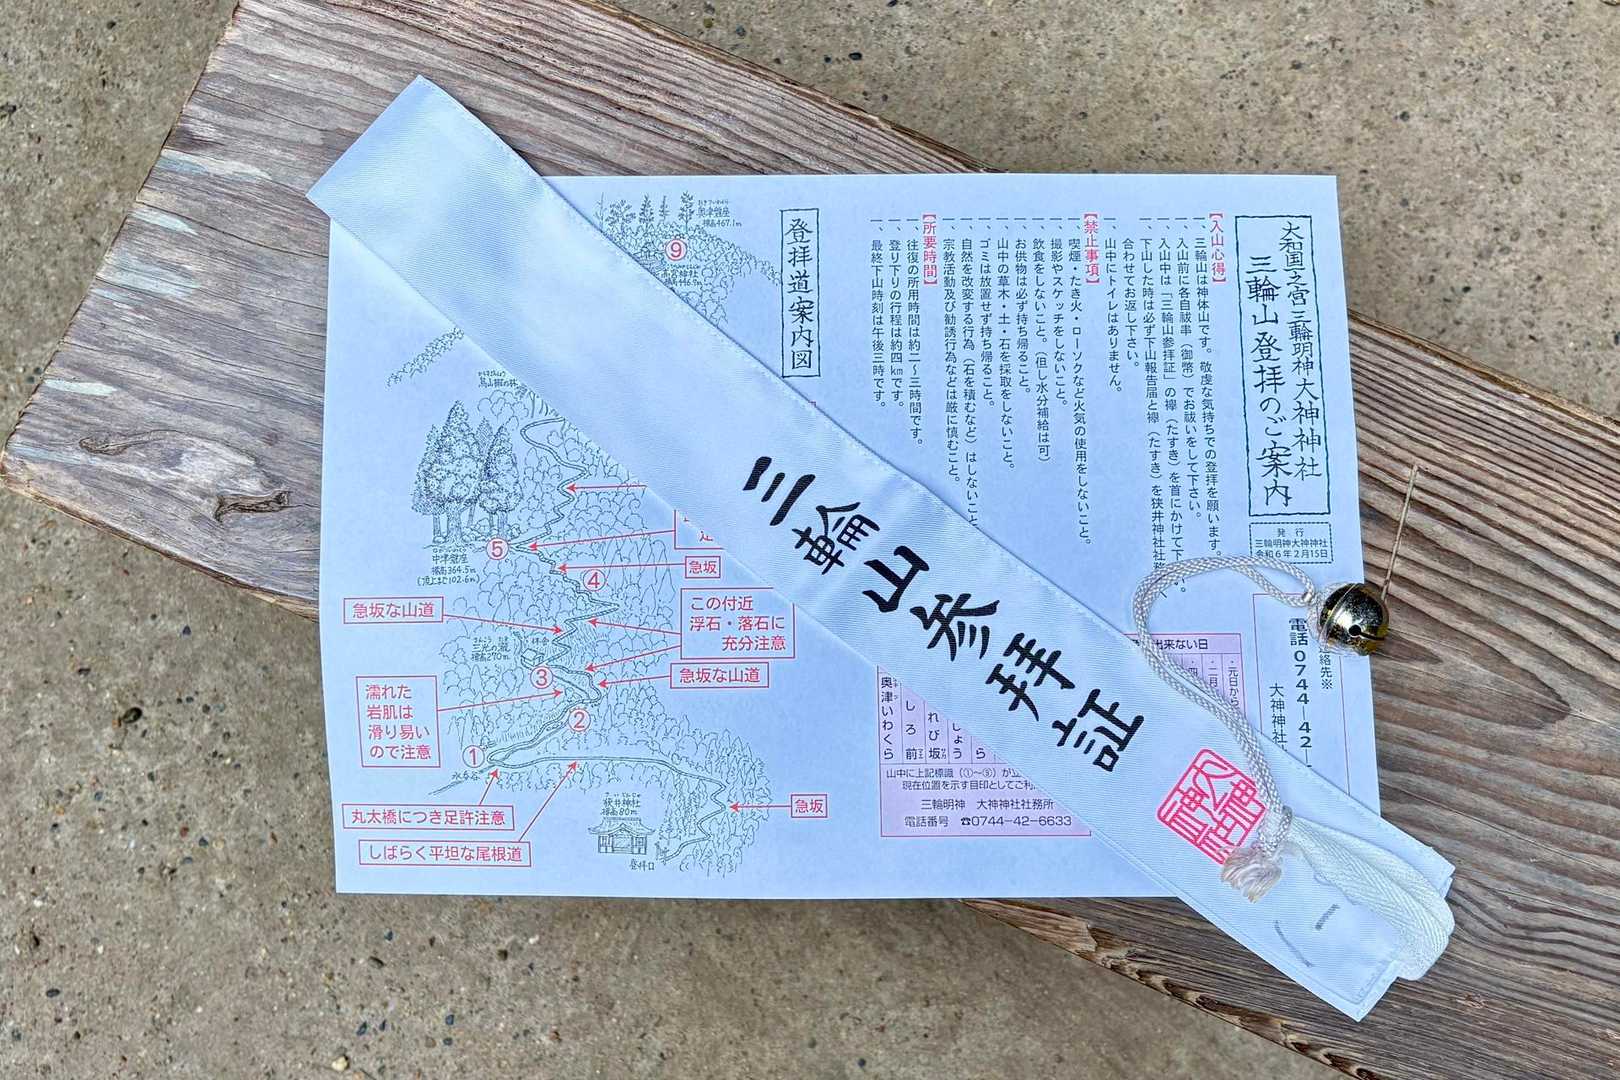 大和国之宮三輪明神大神神社
三輪山登拝のご案内
発行
三輪明神大神神社
令和6年2月15日
【入山心得】
一、三輪山は神体山です。敬虔な気持ちでの登拝を願います。
一、入山前に各自祓串(御幣)でお祓いをして下さい。
一、入山中は「三輪山参拝証」の襷(たすき)を首にかけて下
い。
一、下山した時は必ず下山報告届と襷(たすき)を狭井神社社務
合わせてお返し下さい。
一、山中にトイレはありません。
【禁止事項】
一、喫煙・たき火・ローソクなど火気の使用をしないこと。
一、撮影やスケッチをしないこと。
一、飲食をしないこと。(但し水分補給は可)
一、お供物は必ず持ち帰ること。
一、山中の草木・土・石を採取をしないこと。
一、ゴミは放置せず持ち帰ること。
一、自然を改変する行為(石を積むなど)はしないこと
一、宗教活動及び勧誘行為などは厳に慎むこと。
【所要時間】
一、往復の所用時間は約二〜三時間です。
一、登り下りの行程は約四kmです。
一、最終下山時刻は午後三時です。
登拝道案内図
奥津磐座
標高467.1m
⑨
高宮神社
⑤
中津磐座
標高364.5m
(頂上まで102.6m)
急坂
④
急坂な山道
この付近
浮石・落石に
充分注意
三光の瀧
標高270m
③
急坂な山道
濡れた
岩肌は
滑り易い
ので注意
②
①
丸太橋につき足許注意
しばらく平坦な尾根道
狭井神社
標高80m
登拝口
急坂
三輪山参拝証
大神神社
絡先※
電話0744-42-
大神神社
出来ない日
・元日から
奥津いわくら
しろ前
れび坂
しょう
山中に上記標識(①〜⑨)が立
現在位置を示す目印としてご利
三輪明神 大神神社社務所
電話番号 ☎0744-42-6633